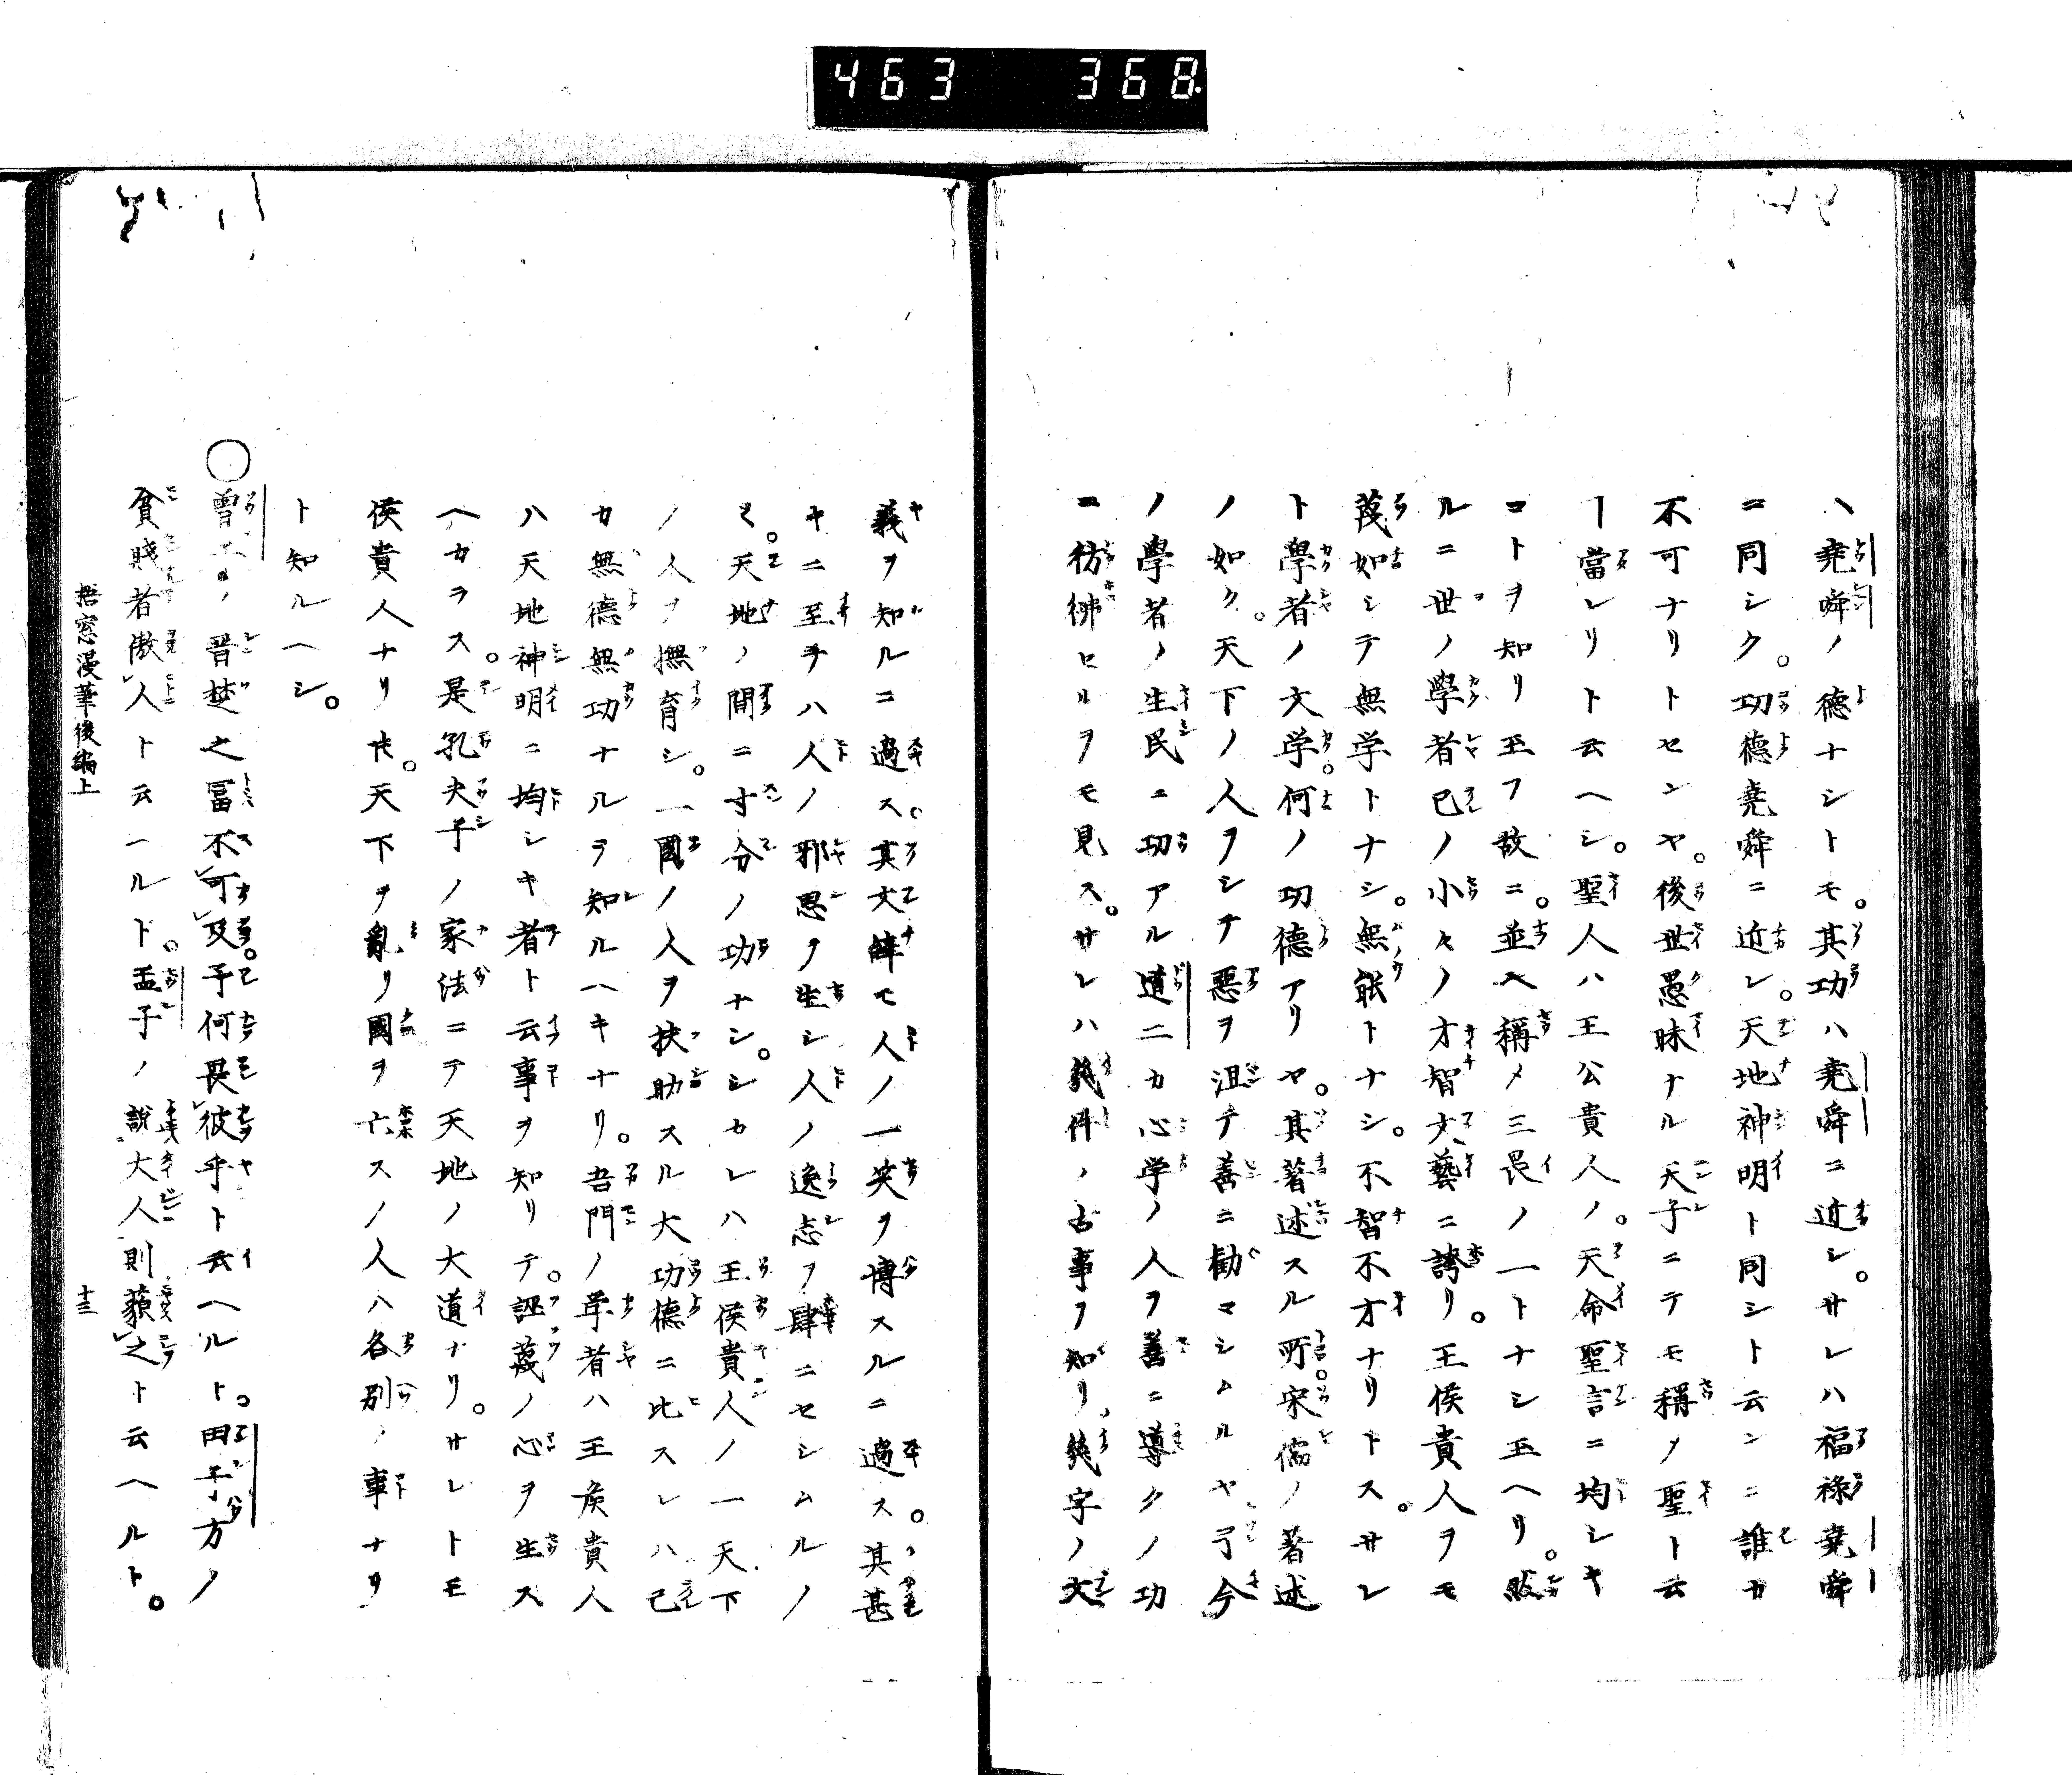 463 368
ハ堯舜ノ徳ナシトモ。其功ハ堯舜ニ近シ。サレハ福祿堯舜
ニ同シク。功徳堯舜ニ近シ。天地神明ト同シト云ンニ誰カ
不可ナリトセンヤ。後世愚昧ナル天子ニテモ稱ノ聖ト云
ー當レリト云ヘシ。聖人ハ王公貴人ノ。天命聖言ニ均シキ
コトヲ知リ玉フ故ニ。並ヘ稱メ三畏ノ一トナシ玉ヘリ。然
ルニ世ノ學者己ノ小々ノ才智文藝ニ誇リ。王侯貴人ヲモ
蔑如シテ無学トナシ。無能トナシ。不智不才ナリトス。サレ
ト學者ノ文学。何ノ功徳アリヤ。其著述スル所。宋儒ノ著述
ノ如ク。天下ノ人ヲシテ惡ヲ沮テ善ニ勸マシムルヤ
今
ノ學者ノ生民ニ功アル道二カ心学ノ人ヲ善ニ導クノ功
ニ彷彿セルヲモ見ス。サレハ幾件ノ古事ヲ知リ幾字ノ文
義ヲ知ルニ過ス。其文
モ人ノ一笑ヲ博スルニ過ス。其甚
キニ至テハ人ノ邪思ヲ生シ人ノ逸志ヲ肆ニセシムルノ
ミ。天地ノ間ニ寸分ノ功ナシ。シカレハ王侯貴人ノ一天下
ノ人ヲ撫育シ。一國ノ人ヲ扶助スル大功徳ニ比スレハ己
カ無徳無功ナルヲ知ルヘキナリ。吾門ノ学者ハ王侯貴人
ハ天地神明ニ均シキ者ト云事ヲ知リテ。誣蔑ノ心ヲ生ス
ヘカラス。是孔夫子ノ家法ニテ天地ノ大道ナリ。サレトモ
侯貴人ナリ圧。天下ヲ亂リ國ヲ亡スノ人ハ各別ノ事ナリ
ト知ルヘシ。
○曽子ノ晋楚之冨不可及。予何畏彼乎ト云ヘルト。田子方ノ
貧賤者傲人ト云ヘルト。孟子ノ說大人則藐之ト云ヘルト。
梧窓漫筆後編上 十三